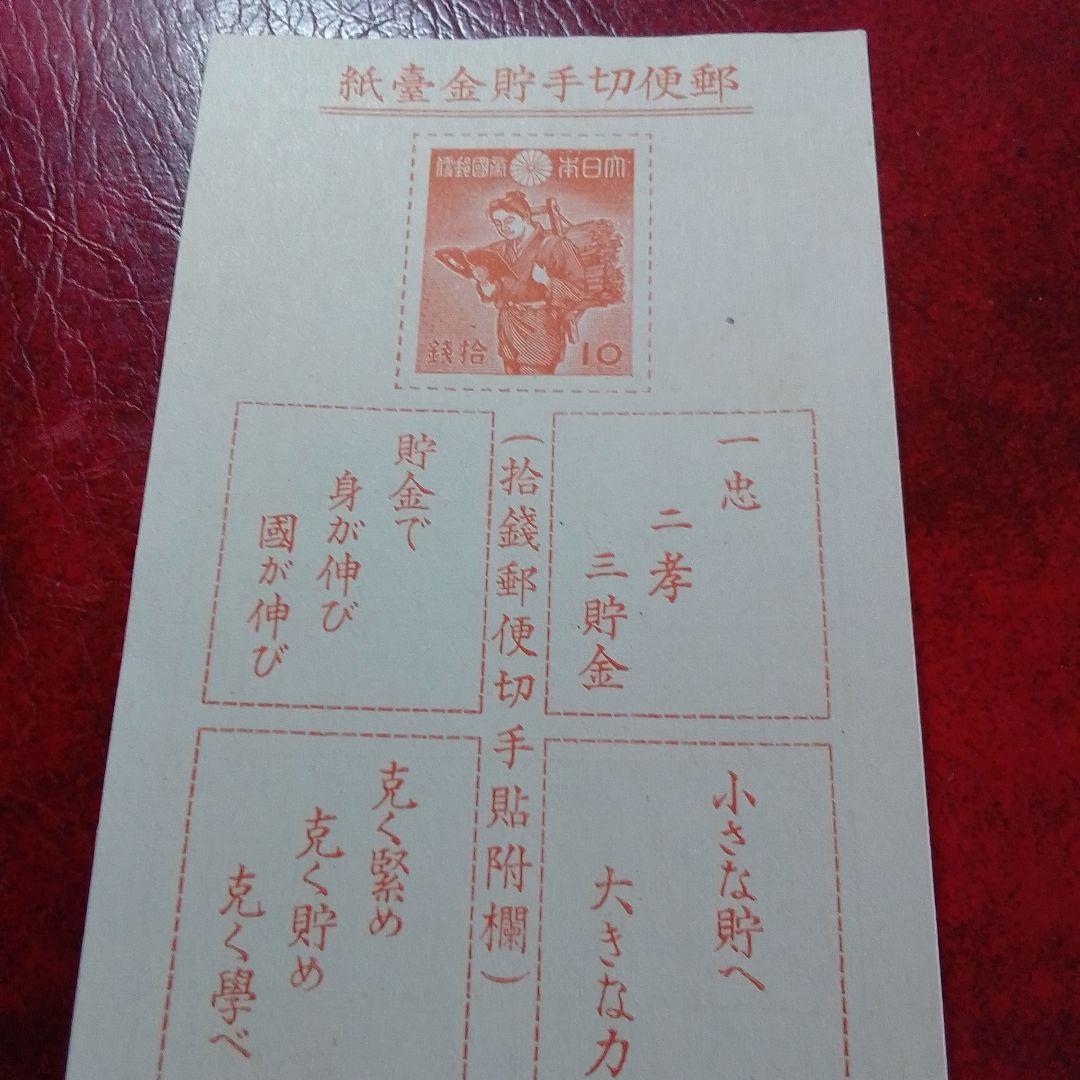 郵便切手貯金臺紙
大日本帝國郵便
拾錢
10
一忠
二孝
三貯金
(拾錢郵便切手貼附欄)
貯金で
身が伸び
國が伸び
小さな貯へ
大きな力
克く緊め
克く貯め
克く學べ